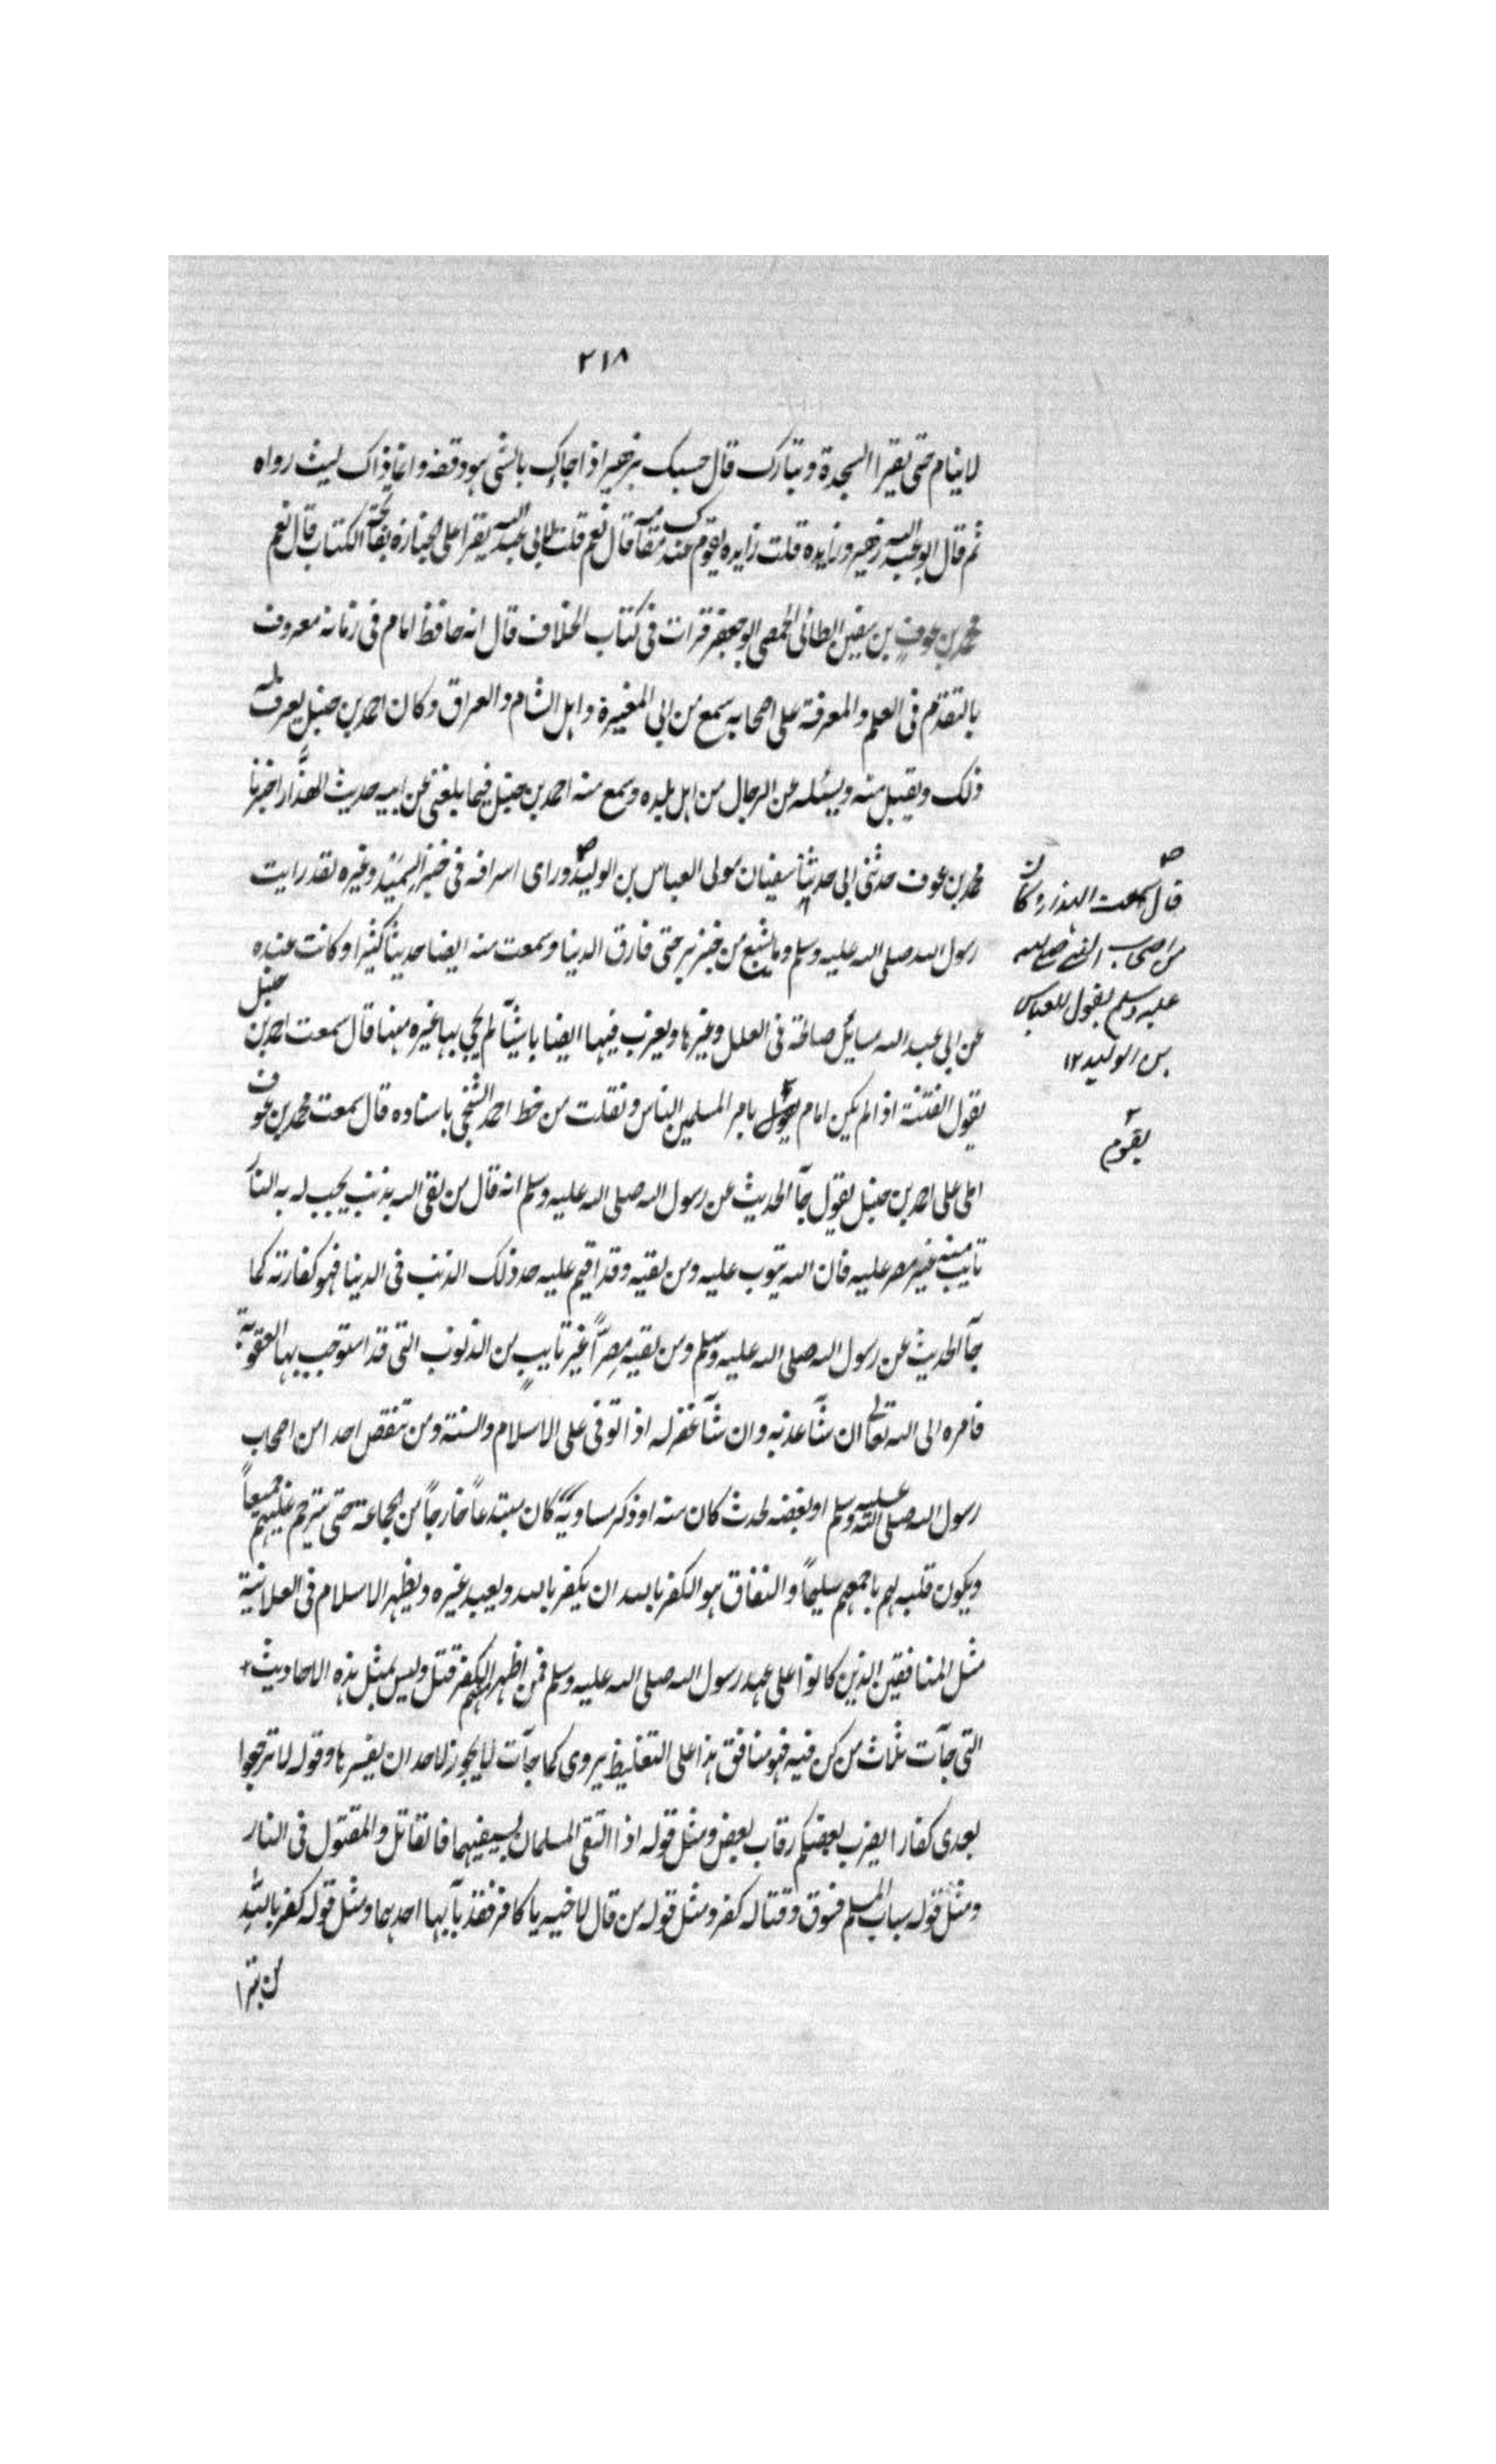 ٢١٨
لاينام حتى يقرا السجدة وتبارك قال حسبك بزهير اذا جاك بالشى هو وقفه وانما ذاك ليث رواه
ثم قال ابو عبد الله زهير وزايده قلت زايده يقوم عندك مقامه قال نعم قلت لابى عبد الله يقرا على الجنازة بفاتحة الكتاب قال نعم
محمد بن عوف بن سفين الطائى الحمصى ابو جعفر قرات فى كتاب الخلاف قال انه حافظ امام فى زمانه معروف
بالتقدم فى العلم والمعرفة على اصحابه سمع من ابى المغيرة واهل الشام والعراق وكان احمد بن حنبل يعرف له
ذلك ويقبل منه ويسئله عن الرجال من اهل بلده وسمع منه احمد بن حنبل فيما بلغنى عن ابيه حديث الهدَّار اخبرنا
محمد بن عوف حدثنى ابى حديثنا سفيان مولى العباس بن الوليد وراى اسرافه فى خبز السميد وغيره لقد رايت
رسول الله صلى الله عليه وسلم وما يشبع من خبز بر حتى فارق الدنيا وسمعت منه ايضا حديثا كثيرا وكانت عنده
عن ابى عبد الله مسايل صالحة فى العلل وغيرها ويغرب فيها ايضا باشيآ لم يجى بها غيره منها قال سمعت احمد بن حنبل
يقول الفتنة اذا لم يكن امام بامر المسلمين الناس ونقلت من خط احمد الشنجى باسناده قال سمعت محمد بن عوف
املى على احمد بن حنبل يقول جآ الحديث عن رسول الله صلى الله عليه وسلم انه قال من لقى الله بذنب يجب له به النار
تايب منه غير مصر عليه فان الله يتوب عليه ومن لقيه وقد اقيم عليه حد ذلك الذنب فى الدنيا فهو كفارته كما
جآ الحديث عن رسول الله صلى الله عليه وسلم ومن لقيه مصرًّا غير تايبٍ من الذنوب التى قد استوجب بها العقوبة
فامره الى الله تعالى ان شآ عذبه وان شآ غفر له اذا توفى على الاسلام والسنة ومن تنقص احدا من اصحاب
رسول الله صلى الله عليه وسلم او بغضه لحدث كان منه او ذكر مساويه كان مبتدعاً خارجاً من الجماعة حتى يترحم عليهم جميعاً
ويكون قلبه لهم باجمعهم سليماً والنفاق هو الكفر بالله ان يكفر بالله ويعبد غيره ويظهر الاسلام فى العلانية
مثل المنافقين الذين كانوا على عهد رسول الله صلى الله عليه وسلم فمن اظهر منهم الكفر قتل وليس بمثل هذه الاحاديث
التى جآت ثلاث من كن فيه فهو منافق هذا على التغليظ يروى كما جآت لايجوز لاحد ان يفسرها وقوله لا ترجعوا
بعدى كفارا يضرب بعضكم رقاب بعض ومثل قوله اذا التقى المسلمان بسيفيهما فالقاتل والمقتول فى النار
ومثل قوله سباب المسلم فسوق وقتاله كفر ومثل قوله من قال لاخيه يا كافر فقد بآ بها احدهما ومثل قوله كفر بالله
من تبرا
قال سمعت الهدار وكان
من اصحاب النبى صلى الله
عليه وسلم يقول للعباس
بن الوليد ١٢
يقوم